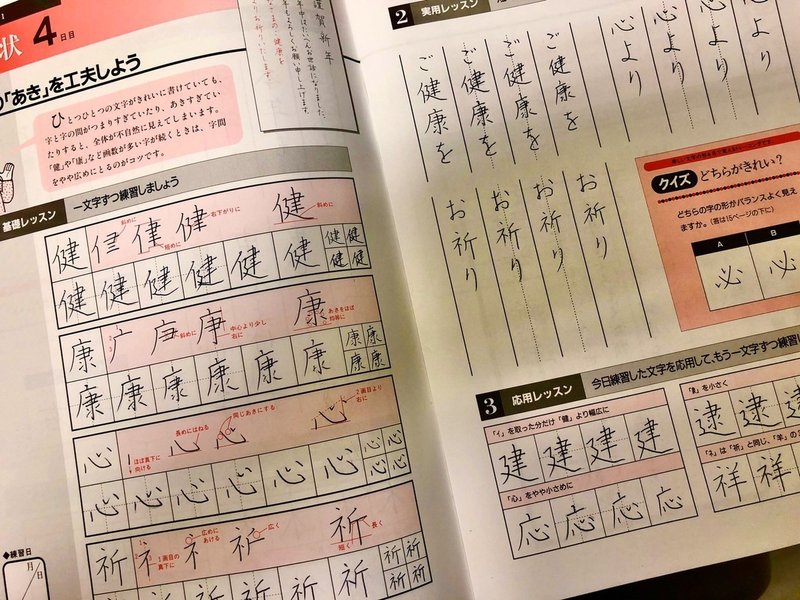 状 4日目
の「あき」を工夫しよう
ひとつひとつの文字がきれいに書けていても、
字と字の間がつまりすぎていたり、あきすぎてい
たりすると、全体が不自然に見えてしまいます。
「健」や「康」など画数が多い字が続くときは、字間
をやや広めにとるのがコツです。
謹賀新年
年中はたいへんお世話になりました
もよろしくお願い申し上げます。
さまの健康を
よりお祈りいたします。
基礎レッスン 一文字ずつ練習しましょう
健 斜めに 短めに 右下がりに 健 斜めに
健 健 健 健 健 健 健 健 健 健
健 健
康 斜めに 中心より少し右に 康 あきをほぼ均等に
康 康 康 康 康 康 康 康 康
康 康
心 ほぼ真下に向ける 長めにはねる 同じあきにする 心 2画目より右に
心 心 心 心 心 心 心 心 心
心 心
祈 1画目の真下に 広めにあける 広く 祈 短く 長く
祈 祈 祈
祈 祈
◆練習日
月/日
2 実用レッスン
心より
心より
心より
心より
ご健康を
ご健康を
ご健康を
ご健康を
お祈り
お祈り
お祈り
お祈り
クイズ どちらがきれい?
どちらの字の形がバランスよく見え
ますか。(答は15ページの下に)
A B
心 心
3 応用レッスン 今日練習した文字を応用して、もう一文字ずつ練習
「イ」を取った分だけ「健」より幅広に
建 建 建 建
「心」をやや小さめに
応 応 応 応
を小さく
逮 逮 逮
「ネ」は「祈」と同じ、「羊」の
祥 祥